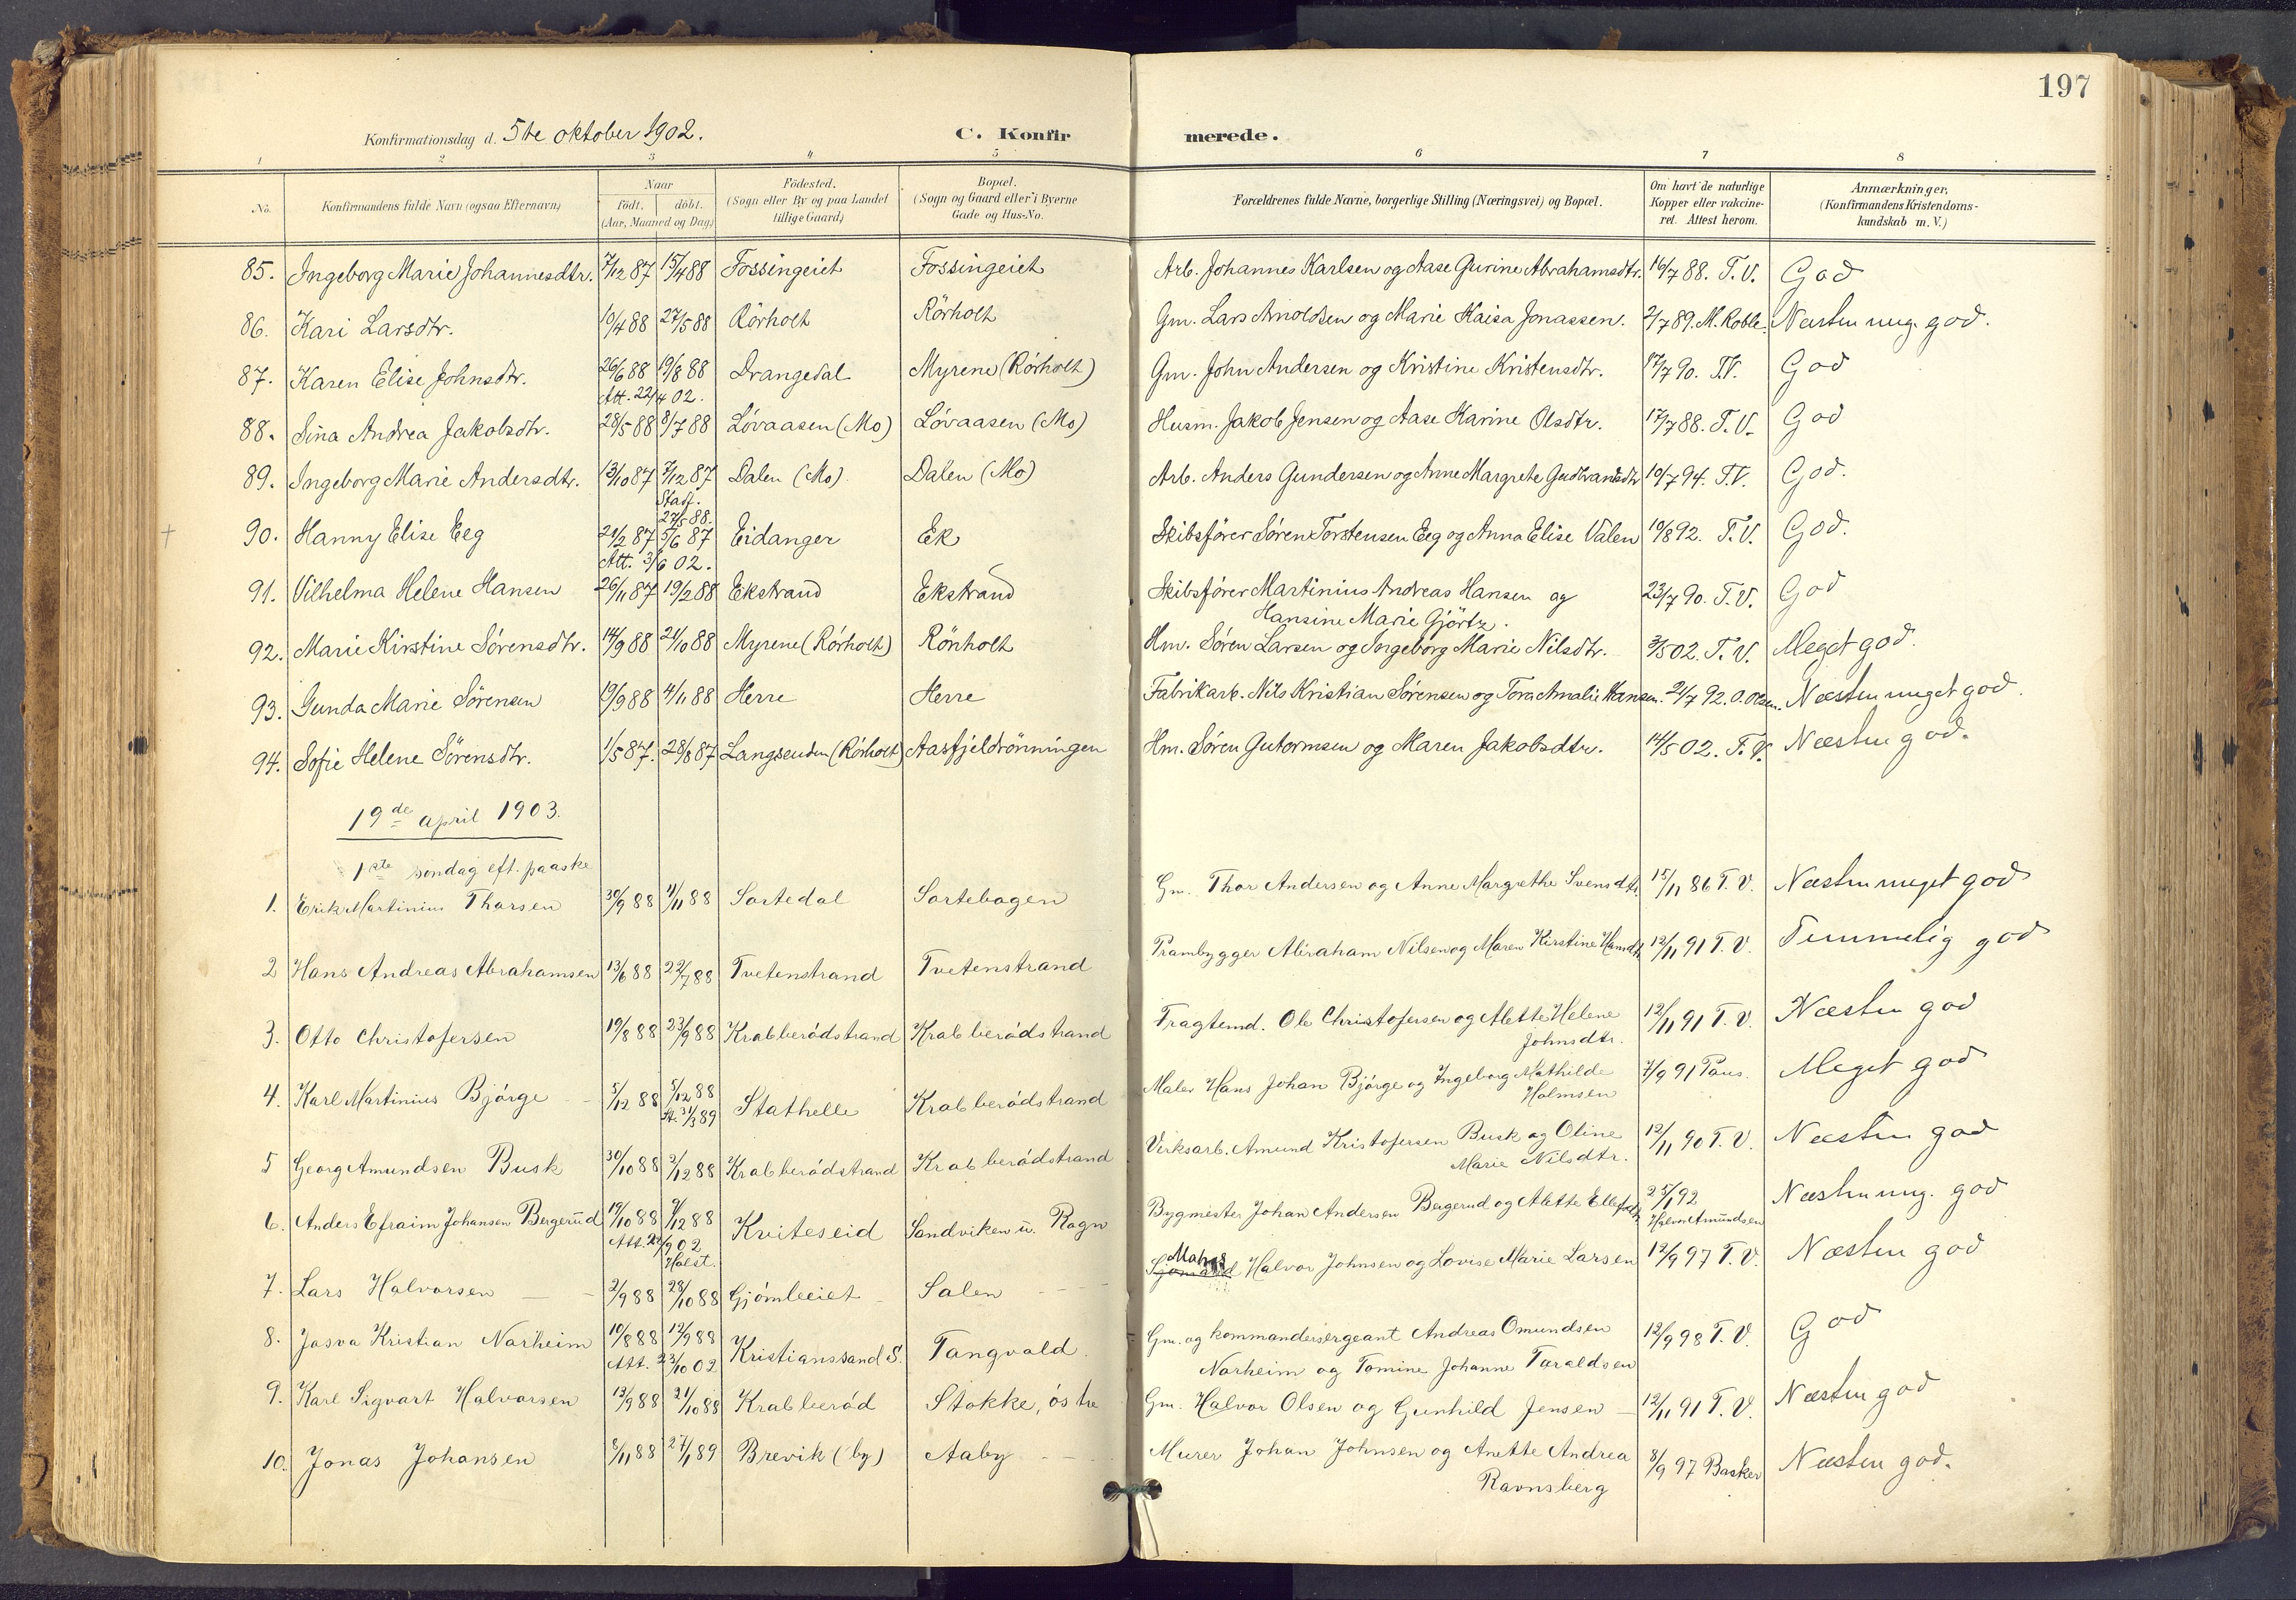 197
Konfirmationsdag d. 5te oktober 1902. C. Konfirmerede.
1 2 3 4 5 6 7 8
No. Konfirmandens fulde Navn (ogsaa Efternavn) Naar födt. döbt. (Aar, Maaned og Dag) Födested. (Sogn eller By og paa Landet tillige Gaard) Bopæl. (Sogn og Gaard eller i Byerne Gade og Hus-No. Forældrenes fulde Navne, borgerlige Stilling (Næringsvei) og Bopæl. Om havt de naturlige Kopper eller vakcineret. Attest herom. Anmærkninger, (Konfirmandens Kristendomskundskab m. V.)
85. Ingeborg Marie Johannesdtr. 7/12 87 15/4 88 Fossingeiet Fossingeiet Arb. Johannes Karlsen og Aase Gurine Abrahamsdtr. 16/7 88. T.V. God
86. Kari Larsdtr. 10/4 88 27/5 88 Rörholt Rörholt Gm. Lars Arnoldsen og Marie Kaisa Jonassen. 2/7 89. M. Roble. Næsten meg. god.
87. Karen Elise Johnsdtr. 26/6 88 19/8 88 Drangedal Myrene (Rörholt) Gm. John Andersen og Kristine Kristensdtr. 17/7 90. T.V. God
Att. 22/4 02.
88. Sina Andrea Jakobsdtr. 28/5 88 8/7 88 Lövaasen (Mo) Lövaasen (Mo) Husm. Jakob Jensen og Aase Karine Olsdtr. 17/7 88. T.V. God
89. Ingeborg Marie Andersdtr. 13/10 87 7/12 87 Dalen (Mo) Dalen (Mo) Arb. Anders Gundersen og Anne Margrete Gudbrandsdtr 10/7 94. T.V. God.
Stadf. 27/5 88.
90. Hanny Elise Eeg 21/2 87 5/6 87 Eidanger Ek Skibsförer Sören Torstensen Eeg og Anna Elise Valen 10/8 92. T.V. God.
Att. 3/6 02.
91. Vilhelma Helene Hansen 26/11 87 19/2 88 Ekstrand Ekstrand Skibsförer Martinius Andreas Hansen og 23/7 90. T.V. God
Hansine Marie Gjörtz.
92. Marie Kirstine Sörensdtr. 14/9 88 21/10 88 Myrene (Rörholt) Rörholt Hm. Sören Larsen og Ingeborg Marie Nilsdtr. 3/5 02. T.V. Meget god.
93. Gunda Marie Sörensen 19/9 88 4/11 88 Herre Herre Fabrikarb. Nils Kristian Sörensen og Tora Amalie Hansen. 21/7 92. O. Olsen. Næsten meget god.
94. Sofie Helene Sörensdtr. 1/5 87. 28/8 87 Langsenden (Rörholt) Aasfjeldrönningen Hm. Sören Gutormsen og Maren Jakobsdtr. 14/5 02. T.V. Næsten god.
19de april 1903.
1ste söndag eft. paaske
1. Erik Martinius Thorsen 30/9 88 11/11 88 Sortedal Sortebogen Gm. Thor Andersen og Anne Margrethe Svensdtr. 15/11 86 T.V. Næsten meget god
2 Hans Andreas Abrahamsen 13/6 88 22/7 88 Tvetenstrand Tvetenstrand Prambygger Abraham Nilsen og Maren Kirstine Hansdtr 12/11 91 T.V. Temmelig god
3. Otto Christofersen 19/8 88 23/9 88 Krabberödstrand Krabberödstrand Fragtemd. Ole Christofersen og Alette Helene 12/11 91 T.V. Næsten god
Johnsdtr.
4. Karl Martinius Bjørge 5/12 88 5/12 88 Stathelle Krabberödstrand Maler Hans Johan Björge og Ingeborg Mathilde 7/9 91 Paus. Meget god
St. 31/3 89 Holmsen
5 Georg Amundsen Busk 30/10 88 2/12 88 Krabberödstrand Krabberödstrand Verksarb. Amund Kristofersen Busk og Oline 12/11 90 T.V. Næsten god
Marie Nilsdtr.
6. Anders Efraim Johansen Bergerud 19/10 88 9/12 88 Kviteseid Sandviken u. Rogn Bygmester Johan Andersen Bergerud og Alette Ellefsdtr 25/1 92 Næsten meg. god
Att. 22/9 02 Halvor Amundsen
Holst.
7. Lars Halvorsen 2/9 88 28/10 88 Gjömleeiet Salen Sjömand Matros Halvor Johnsen og Lovise Marie Larsen 12/9 97 T.V. Næsten god
8. Josva Kristian Norheim 10/8 88 12/9 88 Kristianssand S. Tangvald Gm. og kommandersergeant Andreas Omundsen 12/9 98 T.V. God
Att. 23/10 02 Norheim og Tomine Johanne Taraldsen
9. Karl Sigvart Halvorsen 13/9 88 21/10 88 Krabberöd Stokke, östre Gm. Halvor Olsen og Gunhild Jensen 12/11 91 T.V. Næsten god
10. Jonas Johansen 8/11 88 27/1 89 Brevik (by) Aaby Murer Johan Johnsen og Anette Andrea 8/9 97 Basker Næsten god.
Ravnsberg